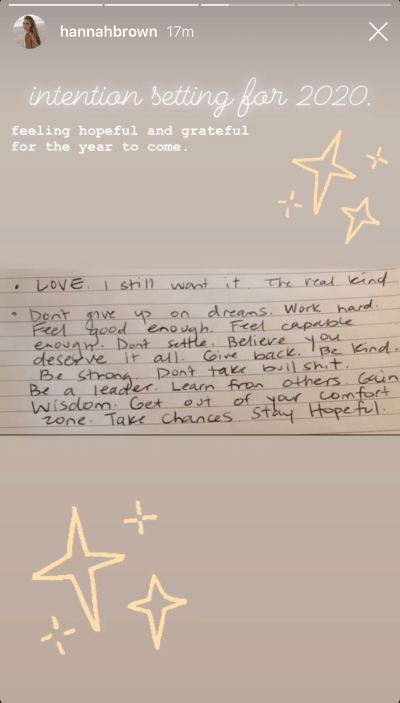 hannahbrown 17m
intention setting for 2020.
feeling hopeful and grateful
for the year to come.
• LOVE. I still want it. The real kind
• Don't give up on dreams. Work hard.
Feel good enough. Feel capable
enough. Dont settle. Believe you
deserve it all. Give back. Be kind.
Be strong. Don't take bullshit.
Be a leader. Learn from others. Gain
Wisdom. Get out of your comfort
zone. Take Chances. Stay Hopeful.